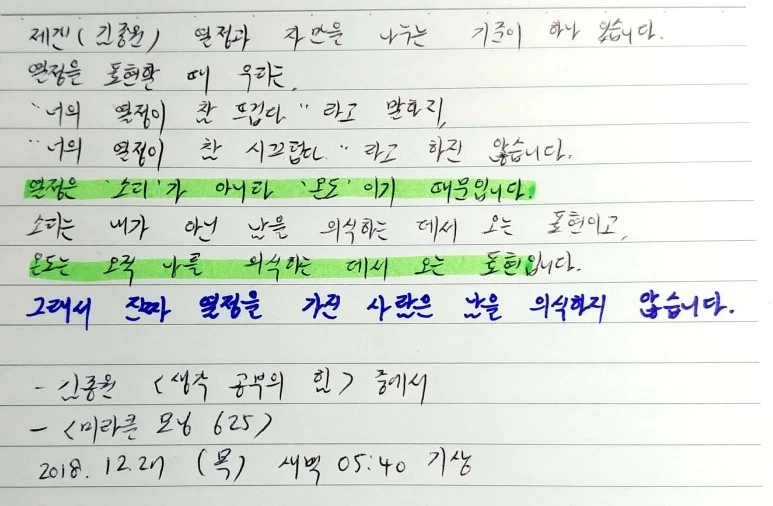 제겐 (김종원) 열정과 자만을 나누는 기준이 하나 있습니다.
열정을 표현할 때 우리는,
"너의 열정이 참 뜨겁다" 라고 말하지,
"너의 열정이 참 시끄럽다." 라고 하진 않습니다.
열정은 '소리'가 아니라 '온도'이기 때문입니다.
소리는 내가 아닌 남을 의식하는 데서 오는 표현이고,
온도는 오직 나를 의식하는 데서 오는 표현입니다.
그래서 진짜 열정을 가진 사람은 남을 의식하지 않습니다.
- 김종원 <생각 공부의 힘> 중에서
- <미라클 모닝 625>
2018. 12.27 (목) 새벽 05:40 기상